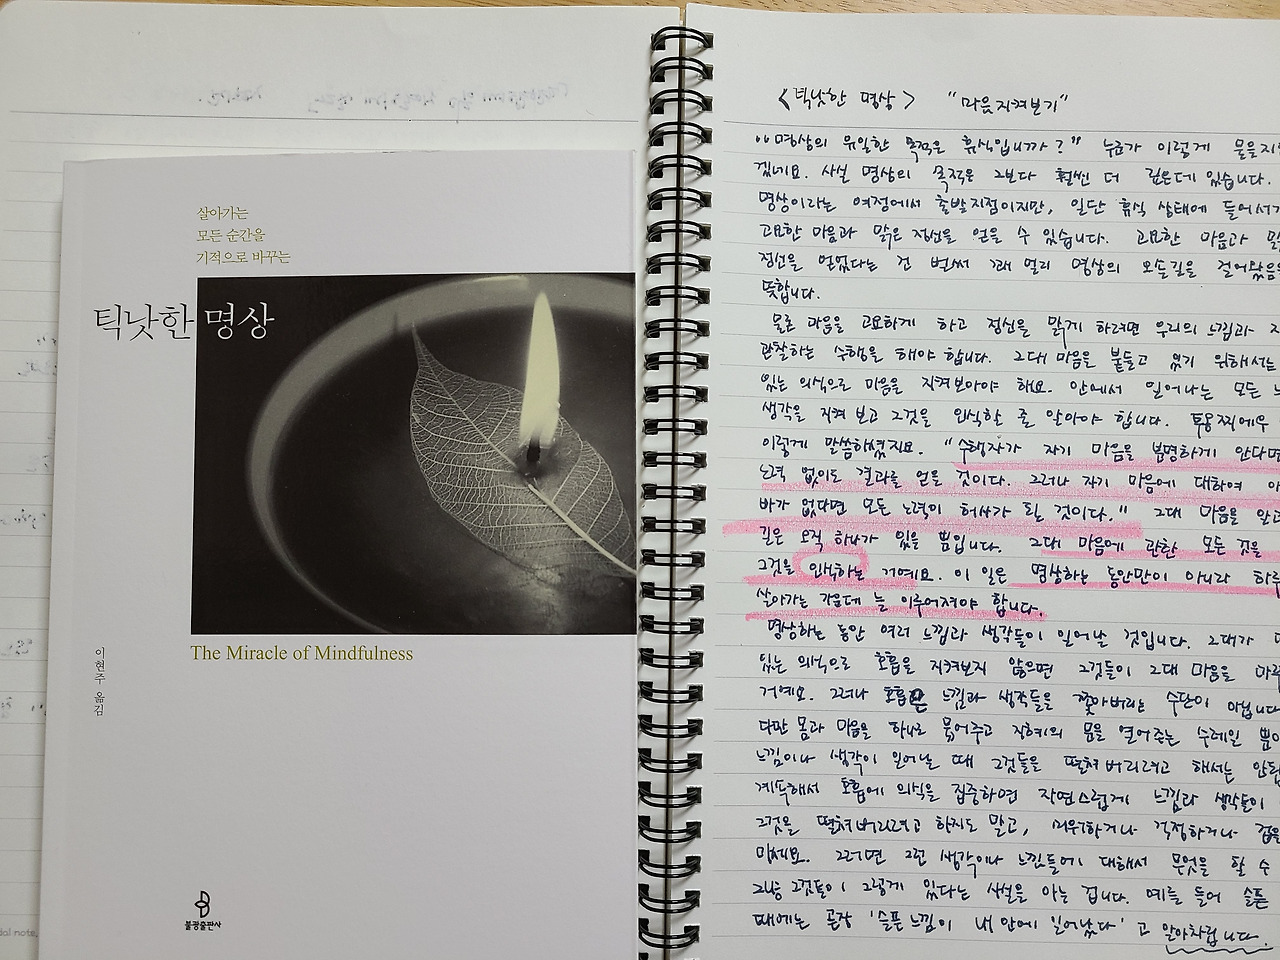 살아가는
모든 순간을
기적으로 바꾸는
틱낫한 명상
The Miracle of Mindfulness
이현주 옮김
불광출판사
<틱낫한 명상> "마음 지켜보기"
"명상의 유일한 목적은 휴식입니까?" 누군가 이렇게 물을지
겠네요. 사실 명상의 목적은 그보다 훨씬 더 깊은데 있습니다.
명상이라는 여정에서 출발지점이지만, 일단 휴식 상태에 들어서
고요한 마음과 맑은 정신을 얻을 수 있습니다. 고요한 마음과
정신을 얻었다는 건 벌써 꽤 멀리 명상의 오솔길을 걸어왔음
뜻합니다.
물론 마음을 고요하게 하고 정신을 맑게 하려면 우리의 느낌과
관찰하는 수행을 해야 합니다. 그대 마음을 붙들고 있기 위해서는
있는 의식으로 마음을 지켜보아야 해요. 안에서 일어나는 모든
생각을 지켜 보고 그것을 인식할 줄 알아야 합니다.
이렇게 말씀하셨지요. "수행자가 자기 마음을 분명하게 안다면
노력 없이도 결과를 얻을 것이다. 그러나 자기 마음에 대하여
바가 없다면 모든 노력이 허사가 될 것이다." 그대 마음을 알고
길은 오직 하나가 있을 뿐입니다. 그대 마음에 관한 모든 것을
그것을 인식하는 거예요. 이 일은 명상하는 동안만이 아니라 하루
살아가는 가운데 늘 이루어져야 합니다.
명상하는 동안 여러 느낌과 생각들이 일어날 것입니다. 그대가
있는 의식으로 호흡을 지켜보지 않으면 그것들이 그대 마음을
거예요. 그러나 호흡은 느낌과 생각들을 쫓아버리는 수단이 아닙니다
다만 몸과 마음을 하나로 묶어주고 지혜의 문을 열어주는 수레일 뿐
느낌이나 생각이 일어날 때 그것들을 떨쳐버리려고 해서는 안
계속해서 호흡에 의식을 집중하면 자연스럽게 느낌과 생각들이
그것을 떨쳐버리려고 하지도 말고, 미워하거나 걱정하거나
마세요. 그러면 그런 생각이나 느낌들에 대해서 무엇을 할 수
그냥 그것들이 그렇게 있다는 사실을 아는 겁니다. 예를 들어 슬픈
때에는 곧장 '슬픈 느낌이 내 안에 일어났다' 고 알아차립니다.